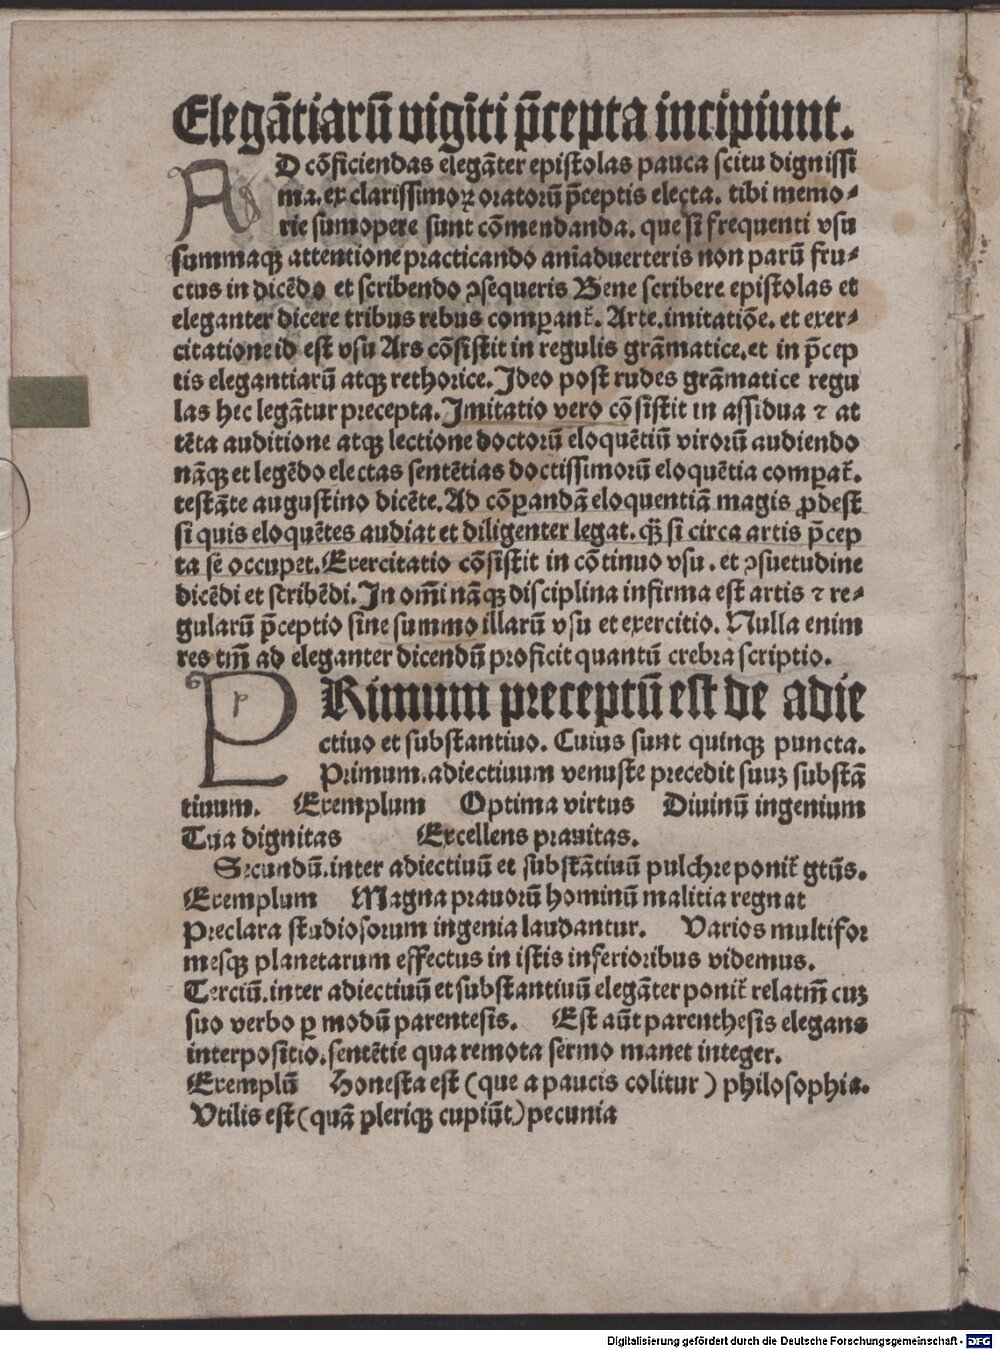 Elegātiarū vigīti p̄cepta incipiunt.
AD cōficiendas elegāter epistolas pauca scitu dignissi
ma. ex clarissimoꝝ oratorū p̄ceptis electa. tibi memo⸗
rie sumopere sunt cōmendanda. que si frequenti vsu
summaqꝫ attentione practicando aniāduerteris non parū fru⸗
ctus in dicēdo et scribendo ꝯsequeris Bene scribere epistolas et
eleganter dicere tribus rebus comꝑant᷑. Arte. imitatiōe. et exer⸗
citatione id est vsu Ars cōsistit in regulis grāmatice. et in p̄cep
tis elegantiarū atqꝫ rethorice. Ideo post rudes grāmatice regu
las hec legātur precepta. Imitatio vero cōsistit in assidua ⁊ at
tēta auditione atqꝫ lectione doctorū eloquētiū virorū audiendo
nāqꝫ et legēdo electas sentētias doctissimorū eloquētia comꝑat᷑.
testāte augustino dicēte. Ad cōꝑandā eloquentiā magis ꝓdest
si quis eloquētes audiat et diligenter legat. qꝫ̄ si circa artis p̄cep
ta se occupet. Exercitatio cōsistit in cōtinuo vsu. et ꝯsuetudine
dicēdi et scribēdi. In om̄i nāqꝫ disciplina infirma est artis ⁊ re⸗
gularū p̄ceptio sine summo illarū vsu et exercitio. Nulla enim
res tm̄ ad eleganter dicendū proficit quantū crebra scriptio.
PRimum preceptū est de adie
ctiuo et substantiuo. Cuius sunt quinqꝫ puncta.
Primum. adiectiuum venuste precedit suuꝫ substā
tiuum. Exemplum Optima virtus Diuinū ingenium
Tua dignitas Excellens prauitas.
Secundū. inter adiectiuū et substātiuū pulchre ponit᷑ gtūs.
Exemplum Magna prauorū hominū malitia regnat
Preclara studiosorum ingenia laudantur. Varios multifor
mesqꝫ planetarum effectus in istis inferioribus videmus.
Terciū. inter adiectiuū et substantiuū elegāter ponit᷑ relatm̄ cuꝫ
suo verbo ꝑ modū parentesis. Est aūt parenthesis elegans
interpositio. sentētie qua remota sermo manet integer.
Exemplū Honesta est (que a paucis colitur) philosophia.
Vtilis est (quā pleriqꝫ cupiūt) pecunia
Digitalisierung gefördert durch die Deutsche Forschungsgemeinschaft - DFG